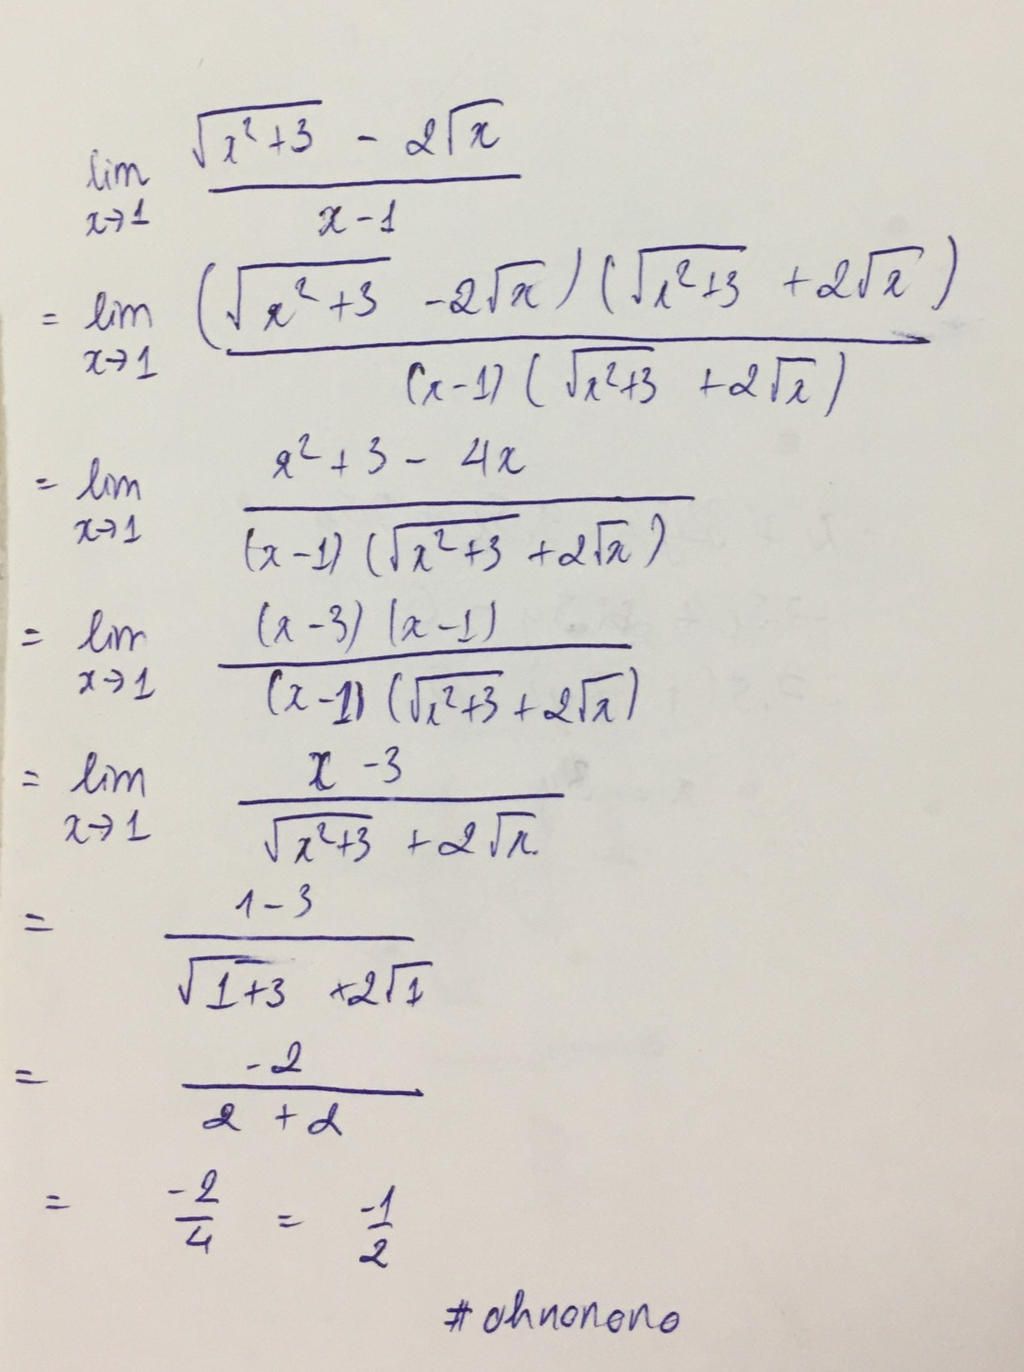 lim x→1 (√(x²+3) - 2√x) / (x-1)
= lim x→1 ((√(x²+3) - 2√x) (√(x²+3) + 2√x)) / ((x-1) (√(x²+3) + 2√x))
= lim x→1 (x²+3 - 4x) / ((x-1) (√(x²+3) + 2√x))
= lim x→1 ((x-3) (x-1)) / ((x-1) (√(x²+3) + 2√x))
= lim x→1 (x-3) / (√(x²+3) + 2√x)
= (1-3) / (√(1+3) + 2√1)
= -2 / (2 + 2)
= -2/4 = -1/2
#ohnonono